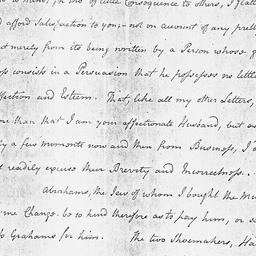 of little Consequence to others, I flatt
d afford Satisfaction to you;- not on account of any prett
not merely from its being written by a Person whose g
ss consists in a Persuasion that he possesses no little
ffection and Esteem. That, like all my other Letters,
ore than that I am your affectionate Husband, but as
ly a few moments now and then from Business, I d
l readily excuse their Brevity and Incorrectness. . .
Abrahams, the Jew of whom I bought the Mu
me Change. be so kind therefore as to pay him, or s
to Grahams for him. The two Shoemakers, Ha